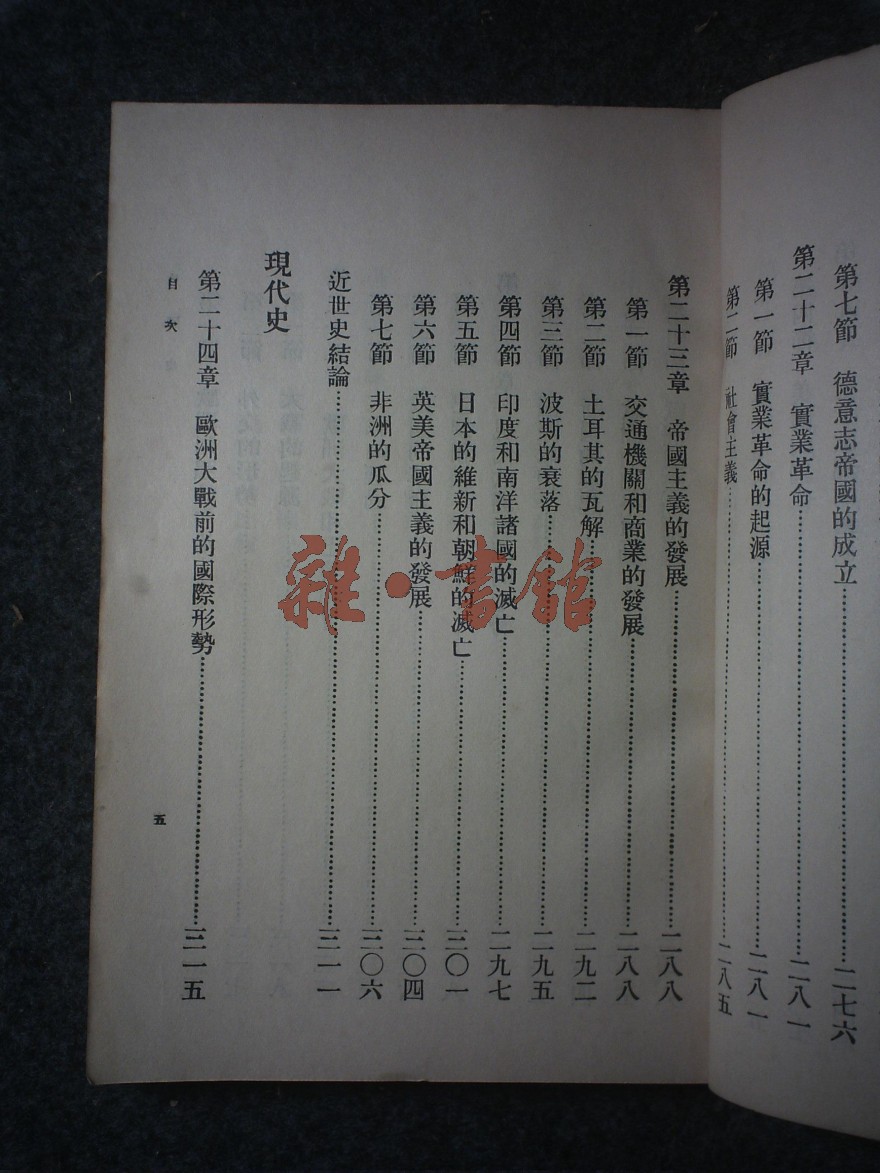 第七節　德意志帝國的成立……二七六
第二十二章　實業革命……二八一
第一節　實業革命的起源……二八一
第二節　社會主義……二八五
第二十三章　帝國主義的發展……二八八
第一節　交通機關和商業的發展……二八八
第二節　土耳其的瓦解……二九二
第三節　波斯的衰落……二九五
第四節　印度和南洋諸國的滅亡……二九七
第五節　日本的維新和朝鮮的滅亡……三〇一
第六節　英美帝國主義的發展……三〇四
第七節　非洲的瓜分……三〇六
近世史結論……三一一
現代史
第二十四章　歐洲大戰前的國際形勢……三一五
目次
五
雜·書館